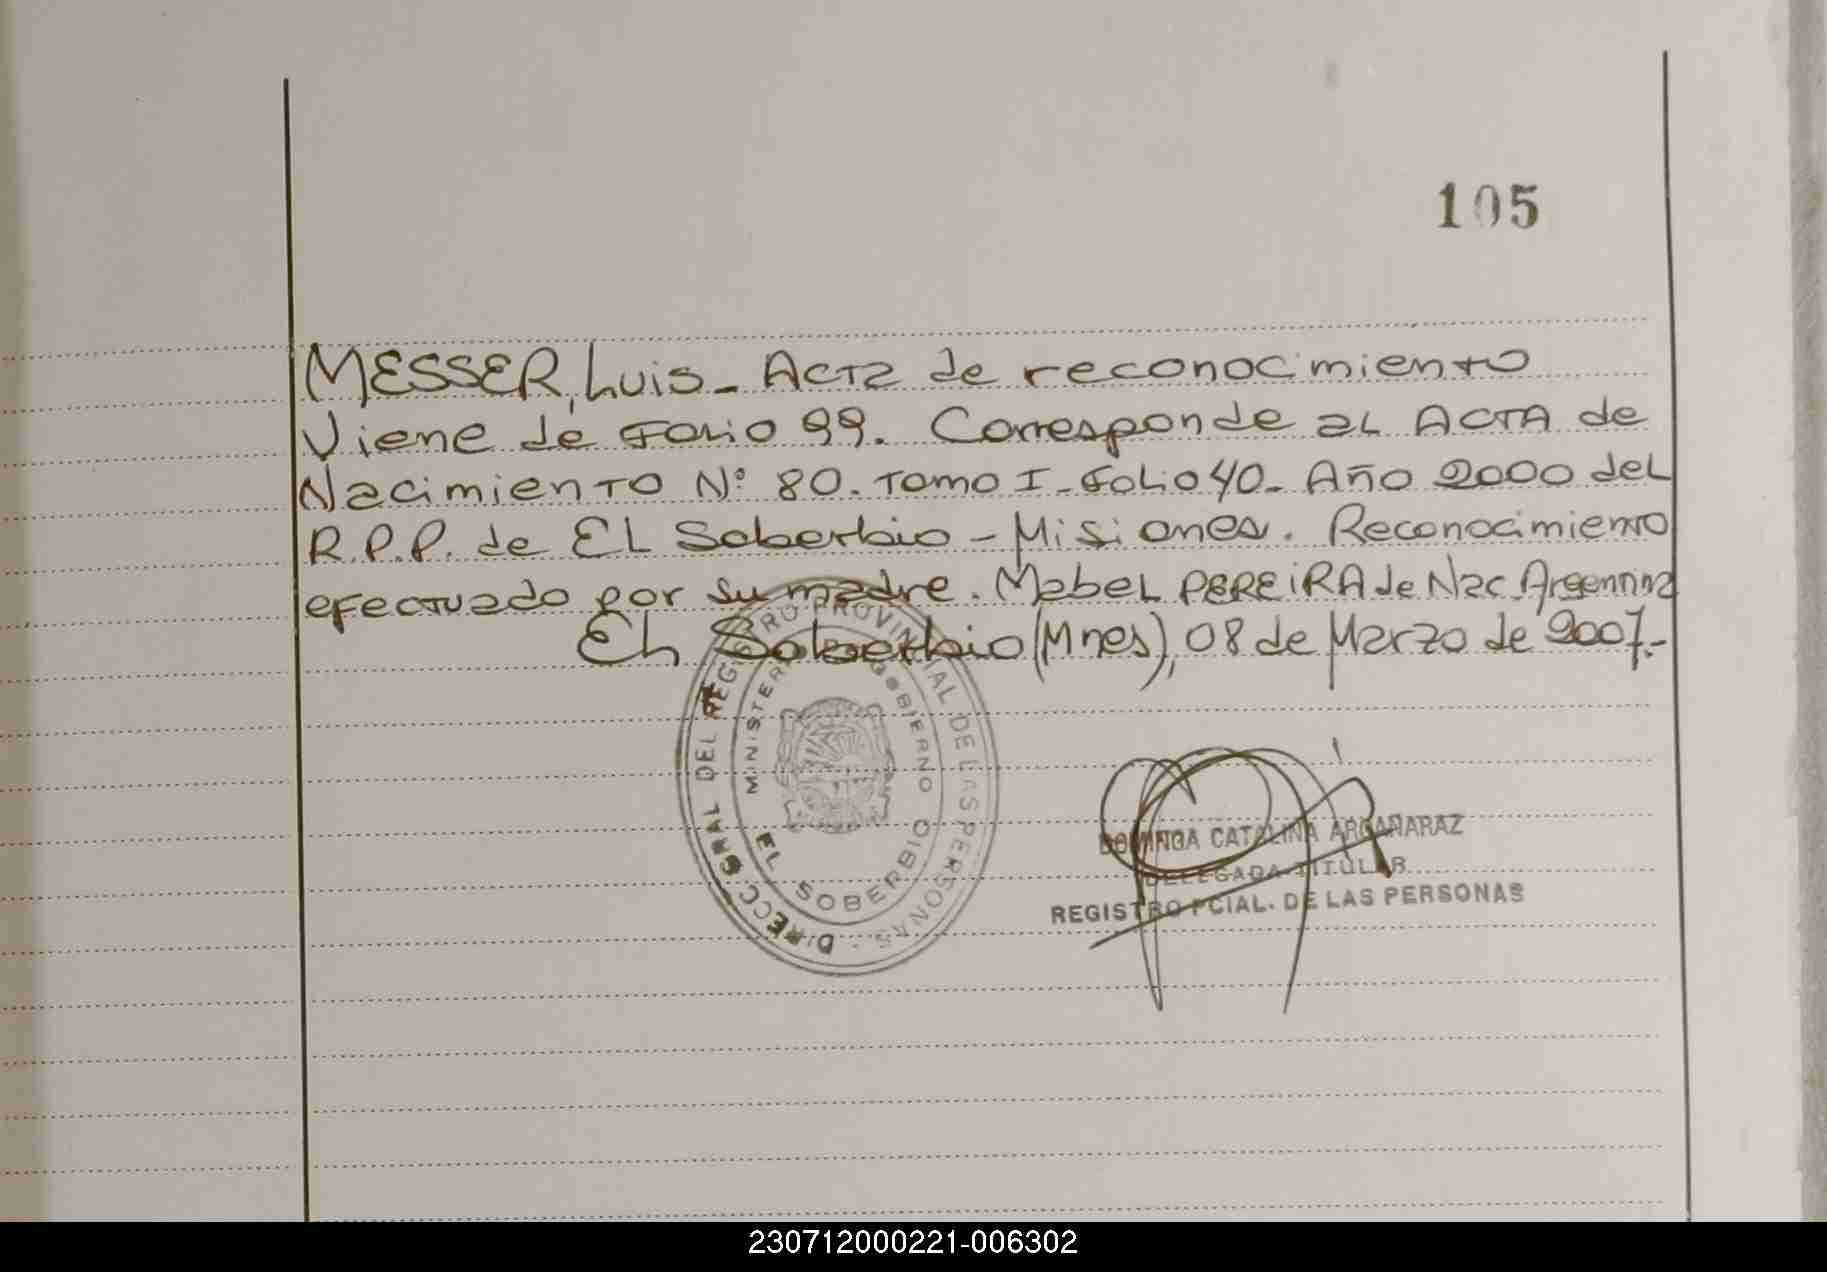 105
MESSER, Luis - Acta de reconocimiento
Viene de Folio 99. Corresponde al ACTA de
Nacimiento Nº 80. Tomo I - Folio 40 - Año 2000 del
R.P.P. de El Soberbio - Misiones. Reconocimiento
efectuado por su madre. Mabel PEREIRA de Nac. Argentina
El Soberbio (Mnes), 08 de Marzo de 2007.-
DIRECC. GRAL DEL REGISTRO PROVINCIAL DE LAS PERSONAS
MINISTERIO DE GOBIERNO
EL SOBERBIO
DOMINGA CATALINA ARGAÑARAZ
DELEGADA TITULAR
REGISTRO PCIAL. DE LAS PERSONAS
230712000221-006302